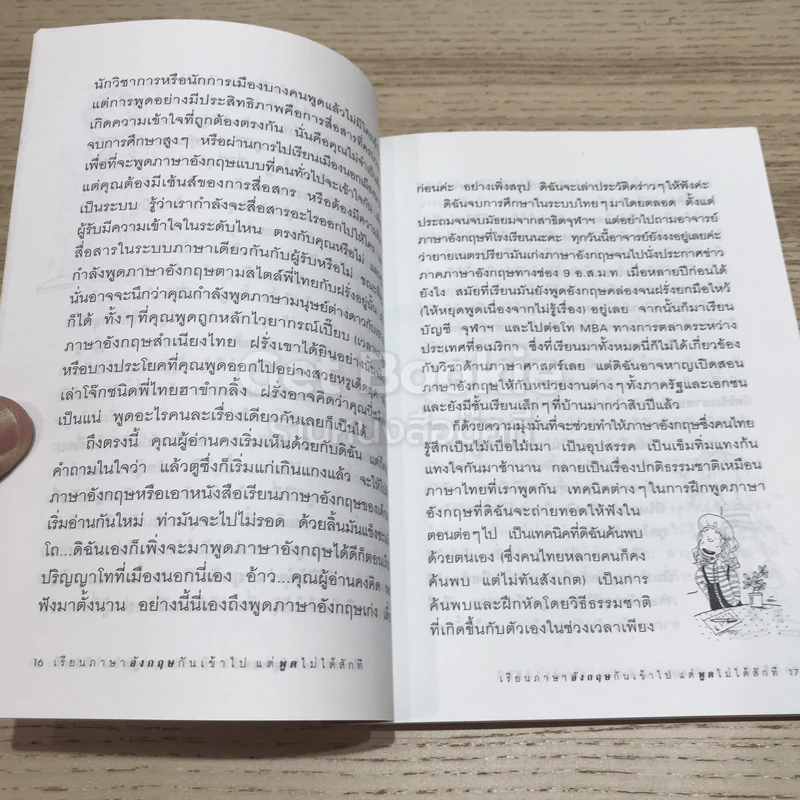 นักวิชาการหรือนักการเมืองบางคนพูดแล้วไม่มีใคร
แต่การพูดอย่างมีประสิทธิภาพคือการสื่อสารที่
เกิดความเข้าใจที่ถูกต้องตรงกัน นั่นคือคุณไม่จำเป็น
จบการศึกษาสูงๆ หรือผ่านการไปเรียนเมืองนอกเมือง
เพื่อที่จะพูดภาษาอังกฤษแบบที่คนทั่วไปจะเข้าใจกัน
แต่คุณต้องมีเซ้นส์ของการสื่อสาร หรือต้องมีความ
เป็นระบบ รู้ว่าเรากำลังจะสื่อสารอะไรออกไปให้ใคร
ผู้รับมีความเข้าใจในระดับไหน ตรงกับคุณหรือไม่ และ
สื่อสารในระบบภาษาเดียวกันกับผู้รับหรือไม่ ขณะที่
กำลังพูดภาษาอังกฤษตามสไตล์พี่ไทยกับฝรั่งอยู่นั้น
นั่นอาจจะนึกว่าคุณกำลังพูดภาษามนุษย์ต่างดาวกับ
ก็ได้ ทั้งๆ ที่คุณพูดถูกหลักไวยากรณ์เปี๊ยบ
ภาษาอังกฤษสำเนียงไทย ฝรั่งเขาได้ยินอย่าง
หรือบางประโยคที่คุณพูดออกไปอย่างสวยหรูเด็ด
เล่าโจ๊กชนิดพี่ไทยฮาขำกลิ้ง ฝรั่งอาจคิดว่าคุณ
เป็นแน่ พูดอะไรคนละเรื่องเดียวกันเลยก็เป็นได้
ถึงตรงนี้ คุณผู้อ่านคงเริ่มเห็นด้วยกับดิฉัน แต่
คำถามในใจว่า แล้วตูซึ่งก็เริ่มแก่เกินแกงแล้ว จะให้ไป
ภาษาอังกฤษหรือเอาหนังสือเรียนภาษาอังกฤษของ
เริ่มอ่านกันใหม่ ท่ามันจะไปไม่รอด ด้วยลิ้นมันแข็ง
โถ...ดิฉันเองก็เพิ่งจะมาพูดภาษาอังกฤษได้ดีก็ตอน
ปริญญาโทที่เมืองนอกนี่เอง อ้าว...คุณผู้อ่านคงคิด
ฟังมาตั้งนาน อย่างนี้นี่เองถึงพูดภาษาอังกฤษเก่ง
16 เรียนภาษาอังกฤษกันเข้าไป แต่พูดไม่ได้สักที
ก่อนค่ะ อย่างเพิ่งสรุป ดิฉันจะเล่าประวัติคร่าวๆ ให้ฟังค่ะ
ดิฉันจบการศึกษาในระบบไทยๆ มาโดยตลอด ตั้งแต่
ประถมจนจบมัธยมจากสาธิตจุฬาฯ แต่อย่าไปถามอาจารย์
ภาษาอังกฤษที่โรงเรียนนะคะ ทุกวันนี้อาจารย์ยังงงอยู่เลยค่ะ
ว่ายายเนตรปรียามันเก่งภาษาอังกฤษจนไปนั่งประกาศข่าว
ภาคภาษาอังกฤษทางช่อง 9 อ.ส.ม.ท. เมื่อหลายปีก่อนได้
ยังไง สมัยที่เรียนมันยังพูดอังกฤษคล่องจนฝรั่งยกมือไหว้
(ให้หยุดพูดเนื่องจากไม่รู้เรื่อง) อยู่เลย จากนั้นก็มาเรียน
บัญชี จุฬาฯ และไปต่อโท MBA ทางการตลาดระหว่าง
ประเทศที่อเมริกา ซึ่งที่เรียนมาทั้งหมดนี่ก็ไม่ได้เกี่ยวข้อง
กับวิชาด้านภาษาศาสตร์เลย แต่ดิฉันอาจหาญเปิดสอน
ภาษาอังกฤษให้กับหน่วยงานต่างๆ ทั้งภาครัฐและเอกชน
และยังมีชั้นเรียนเล็กๆ ที่บ้านมากว่าสิบปีแล้ว
ก็ด้วยความมุ่งมั่นที่จะช่วยทำให้ภาษาอังกฤษซึ่งคนไทย
รู้สึกเป็นไม้เบื่อไม้เมา เป็นอุปสรรค เป็นเข็มทิ่มแทงกัน
แทงใจกันมาช้านาน กลายเป็นเรื่องปกติธรรมชาติเหมือน
ภาษาไทยที่เราพูดกัน เทคนิคต่างๆ ในการฝึกพูดภาษา
อังกฤษที่ดิฉันจะถ่ายทอดให้ฟังใน
ตอนต่อๆ ไป เป็นเทคนิคที่ดิฉันค้นพบ
ด้วยตนเอง (ซึ่งคนไทยหลายคนก็คง
ค้นพบ แต่ไม่ทันสังเกต) เป็นการ
ค้นพบและฝึกหัดโดยวิธีธรรมชาติ
ที่เกิดขึ้นกับตัวเองในช่วงเวลาเพียง
เรียนภาษาอังกฤษกันเข้าไป แต่พูดไม่ได้สักที 17